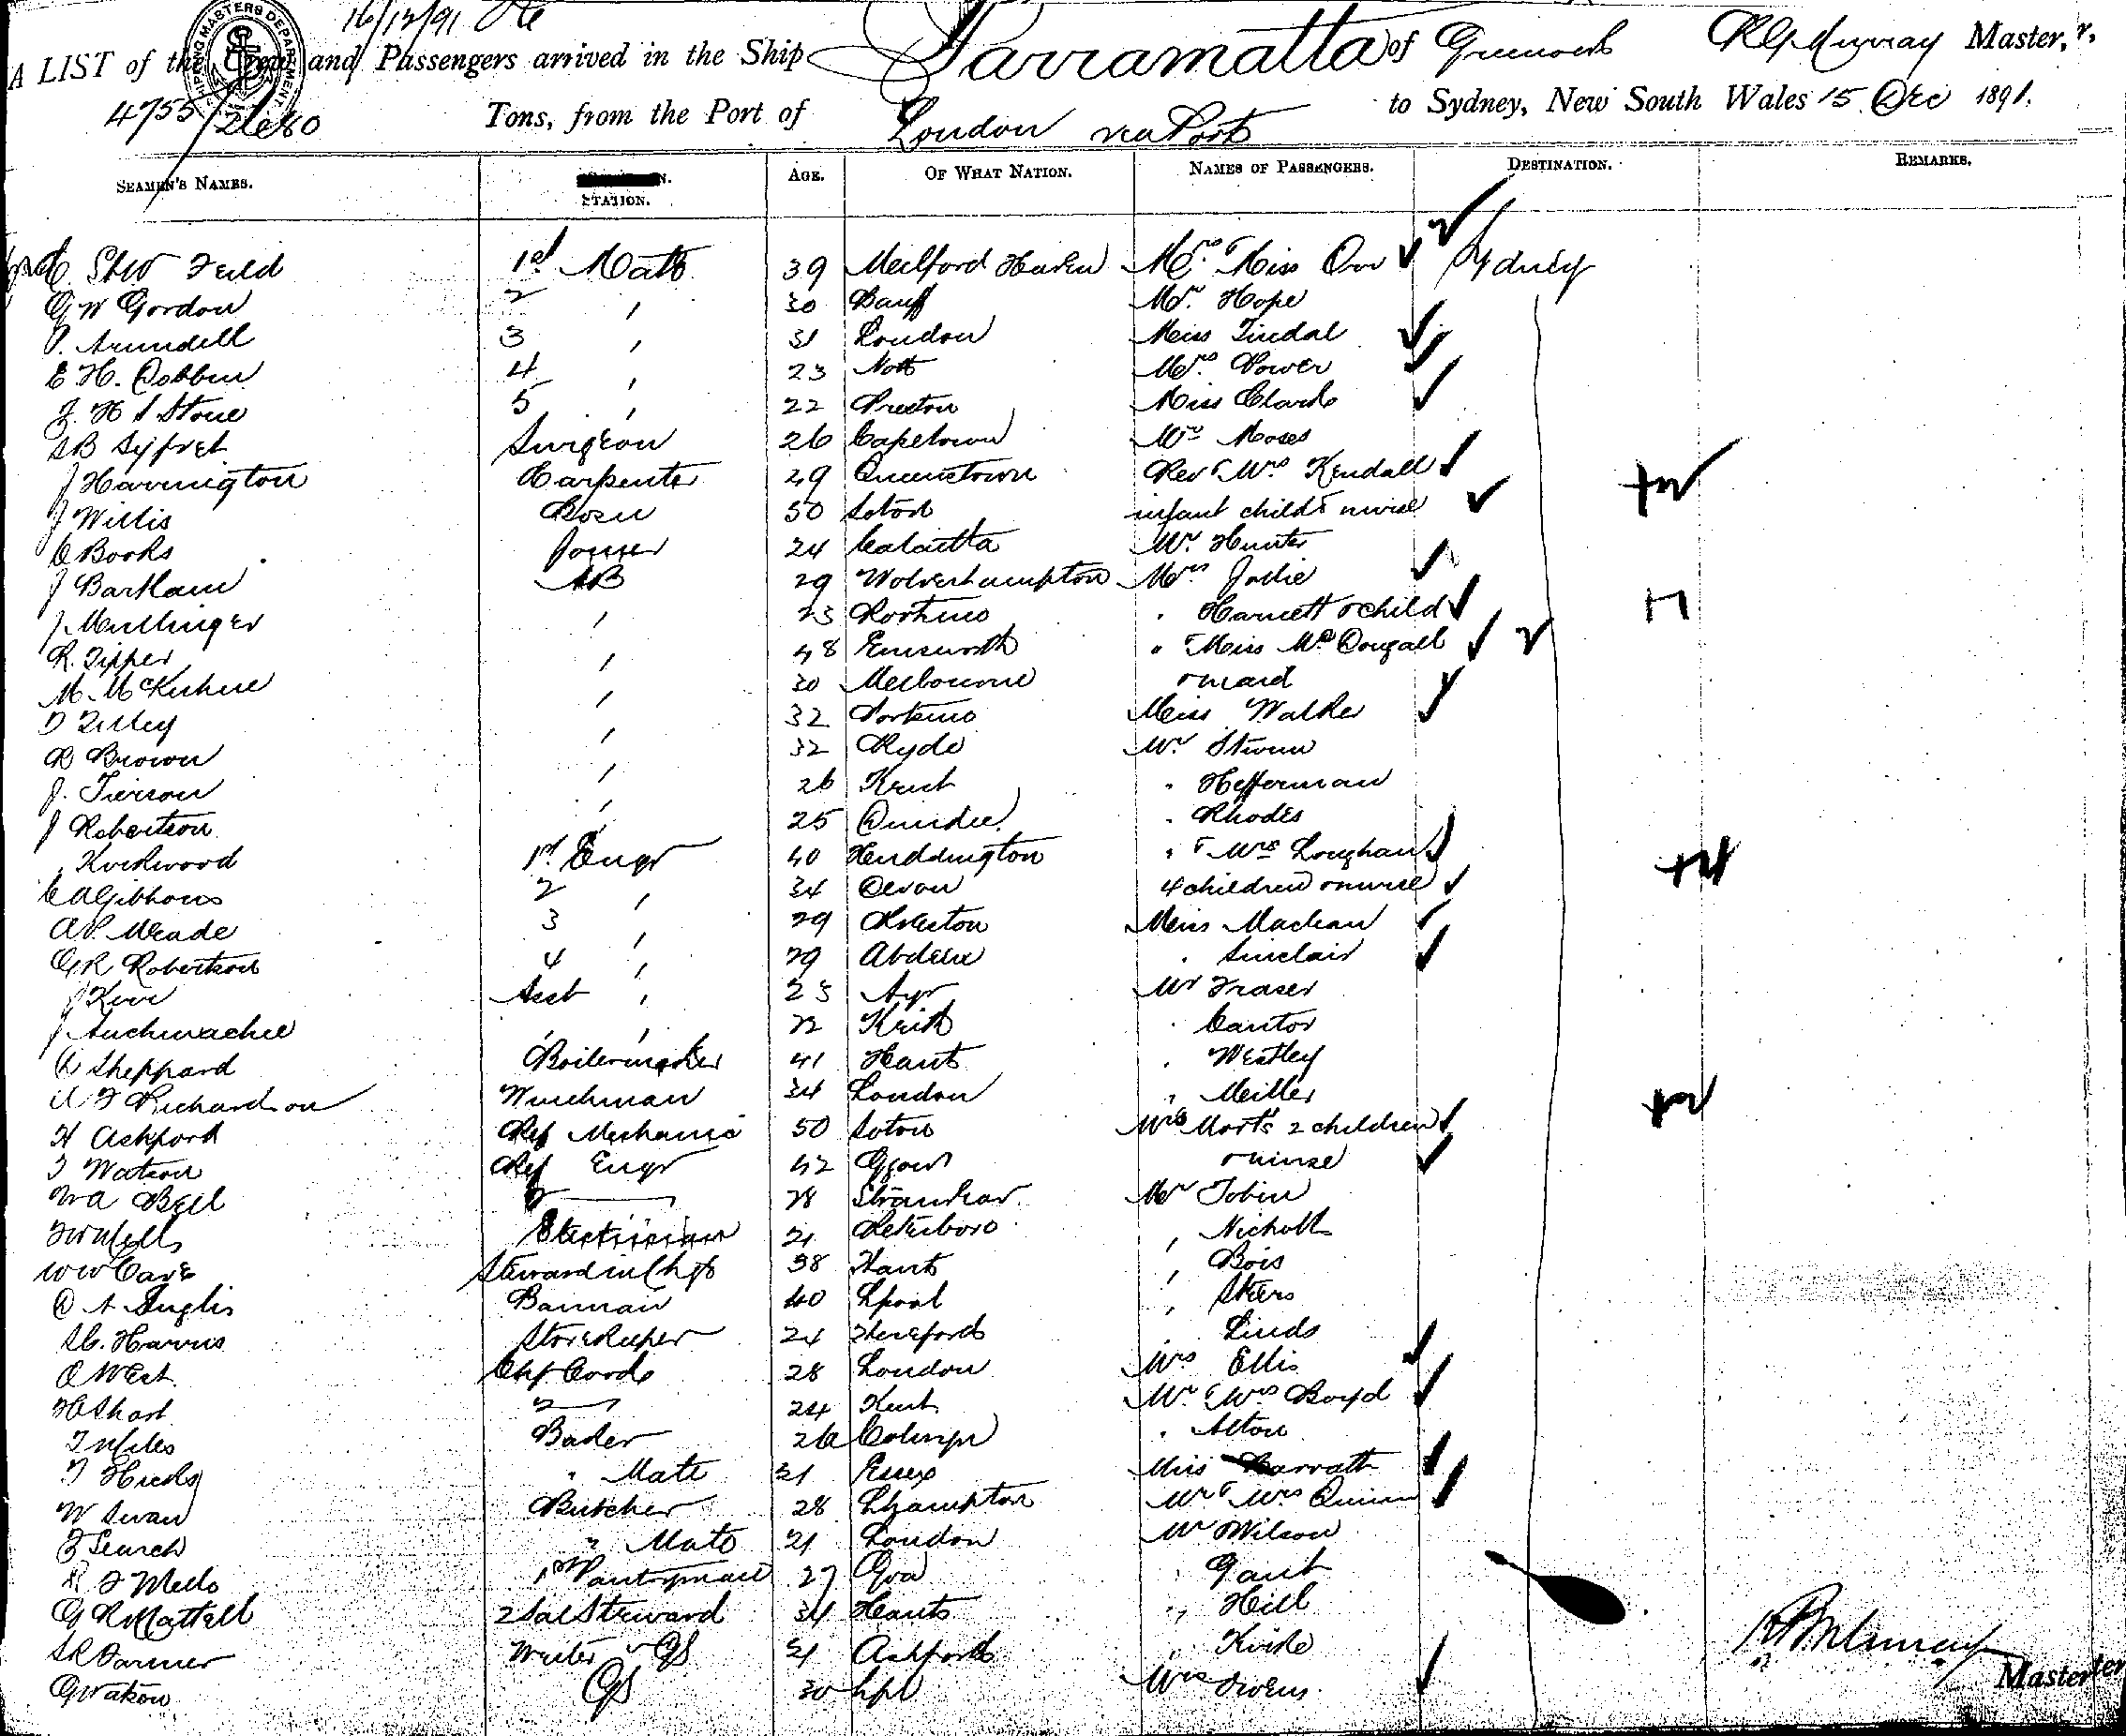 16/12/91
A LIST of the Crew and Passengers arrived in the Ship Parramatta of Greenock Master,
SHIPPING MASTERS DEPARTMENT
4755 Tons, from the Port of London via Ports to Sydney, New South Wales 15 Dec 1891.
SEAMEN'S NAMES. STATION. AGE. OF WHAT NATION. NAMES OF PASSENGERS. DESTINATION. REMARKS.
1st Mate 39 Milford Haven Miss Sydney
G W Gordon 2 " 30 Banff Mr. Hope
P. Arundell 3 " 31 London Miss Tindal
E H. Dobbin 4 " 23 Notts Mrs. Power
J. H S Stone 5 " 22 Preston Miss Clarke
S B Syfret Surgeon 26 Capetown Mrs Moses
J Harrington Carpenter 29 Queenstown Rev & Mrs Kendall
J Willis Bosn 50 Soton infant child & nurse
C Books Joiner 24 Calcutta Mr. Hunter
J Bartlam AB 29 Wolverhampton Mrs
J Mullinger " 23 Portsmo " Harnett & child
R. Tipper " 48 Emsworth " & Miss McDougall
M. " 30 Melbourne & maid
D Tilley " 32 Portsmo Miss Walker
R Brown " 32 Ryde Mr
J. Tierson " 26 Kent " Heffernan
J Robertson " 25 Dundee " Rhodes
Kirkwood 1st Engr 40 Haddington " & Mrs Loughan
C A Gibbons 2 " 34 Devon 4 children & nurse
A P. Meade 3 " 29 Miss Maclean
G R Robertson 4 " 29 " Sinclair
J Kerr Asst " 23 Ayr Mr Fraser
J " 22 Keith " Cantor
Sheppard Boilermaker 41 Hants " Westley
Richardson Winchman 34 London " Miller
H Ashford Ref Mechanic 50 Soton Mrs Mort & 2 children
T Watson Ref Engr 42 & nurse
W A Bell 2 28 Stranraer Mr Tobin
Electrician 21 Peterboro "
W W Cave Steward in Chge 38 Hants " Bois
D A Inglis Barman 40 Lpool "
Harris Storekeeper 24 Hereford "
O West Chf Cook 28 London Mrs Ellis
H Short 2 24 Kent Mr & Mrs Boyd
T Miles Baker " Alton
T Hicks " Mate 21 Essex Miss
W Swan Butcher 28 Mr & Mrs Quinn
Search " Mate 21 London Mr Wilson
1st Pantryman 27 Goa " Gaunt
G R Mattell 2 Sal Steward 34 Hants " Hill
S R Farmer Writer & GS 21 Ashford "
G Watson GS 30 Lpl Mrs Owens.
Master